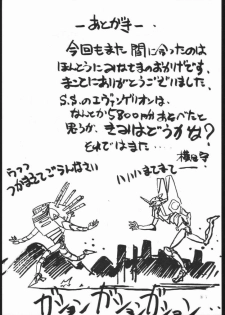 ーあとがきー
今回もまた間に合ったのは
ほんとうにみなさまのおかげです。
まことにありがとうございました。
S.S.のエヴァンゲリオンは、
なんとか5800円
と
思うが、きみはどうかな?
それではまた
横田守
うふふ
つかまえてごらんなさい
ハハハまてまてー
ガションガションガション